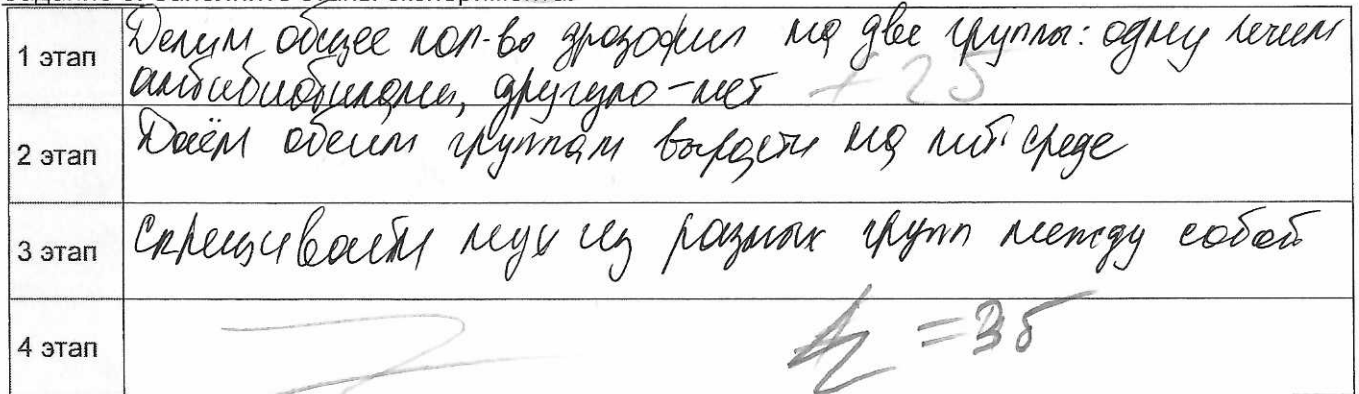 1 этап
Делим общее кол-во дрозофил на две группы: одну лечим
антибиотиками, другую - нет + 2б
2 этап
Даём обеим группам вырасти на пит. среде
3 этап
Скрещиваем мух из разных групп между собой
4 этап
= 3б